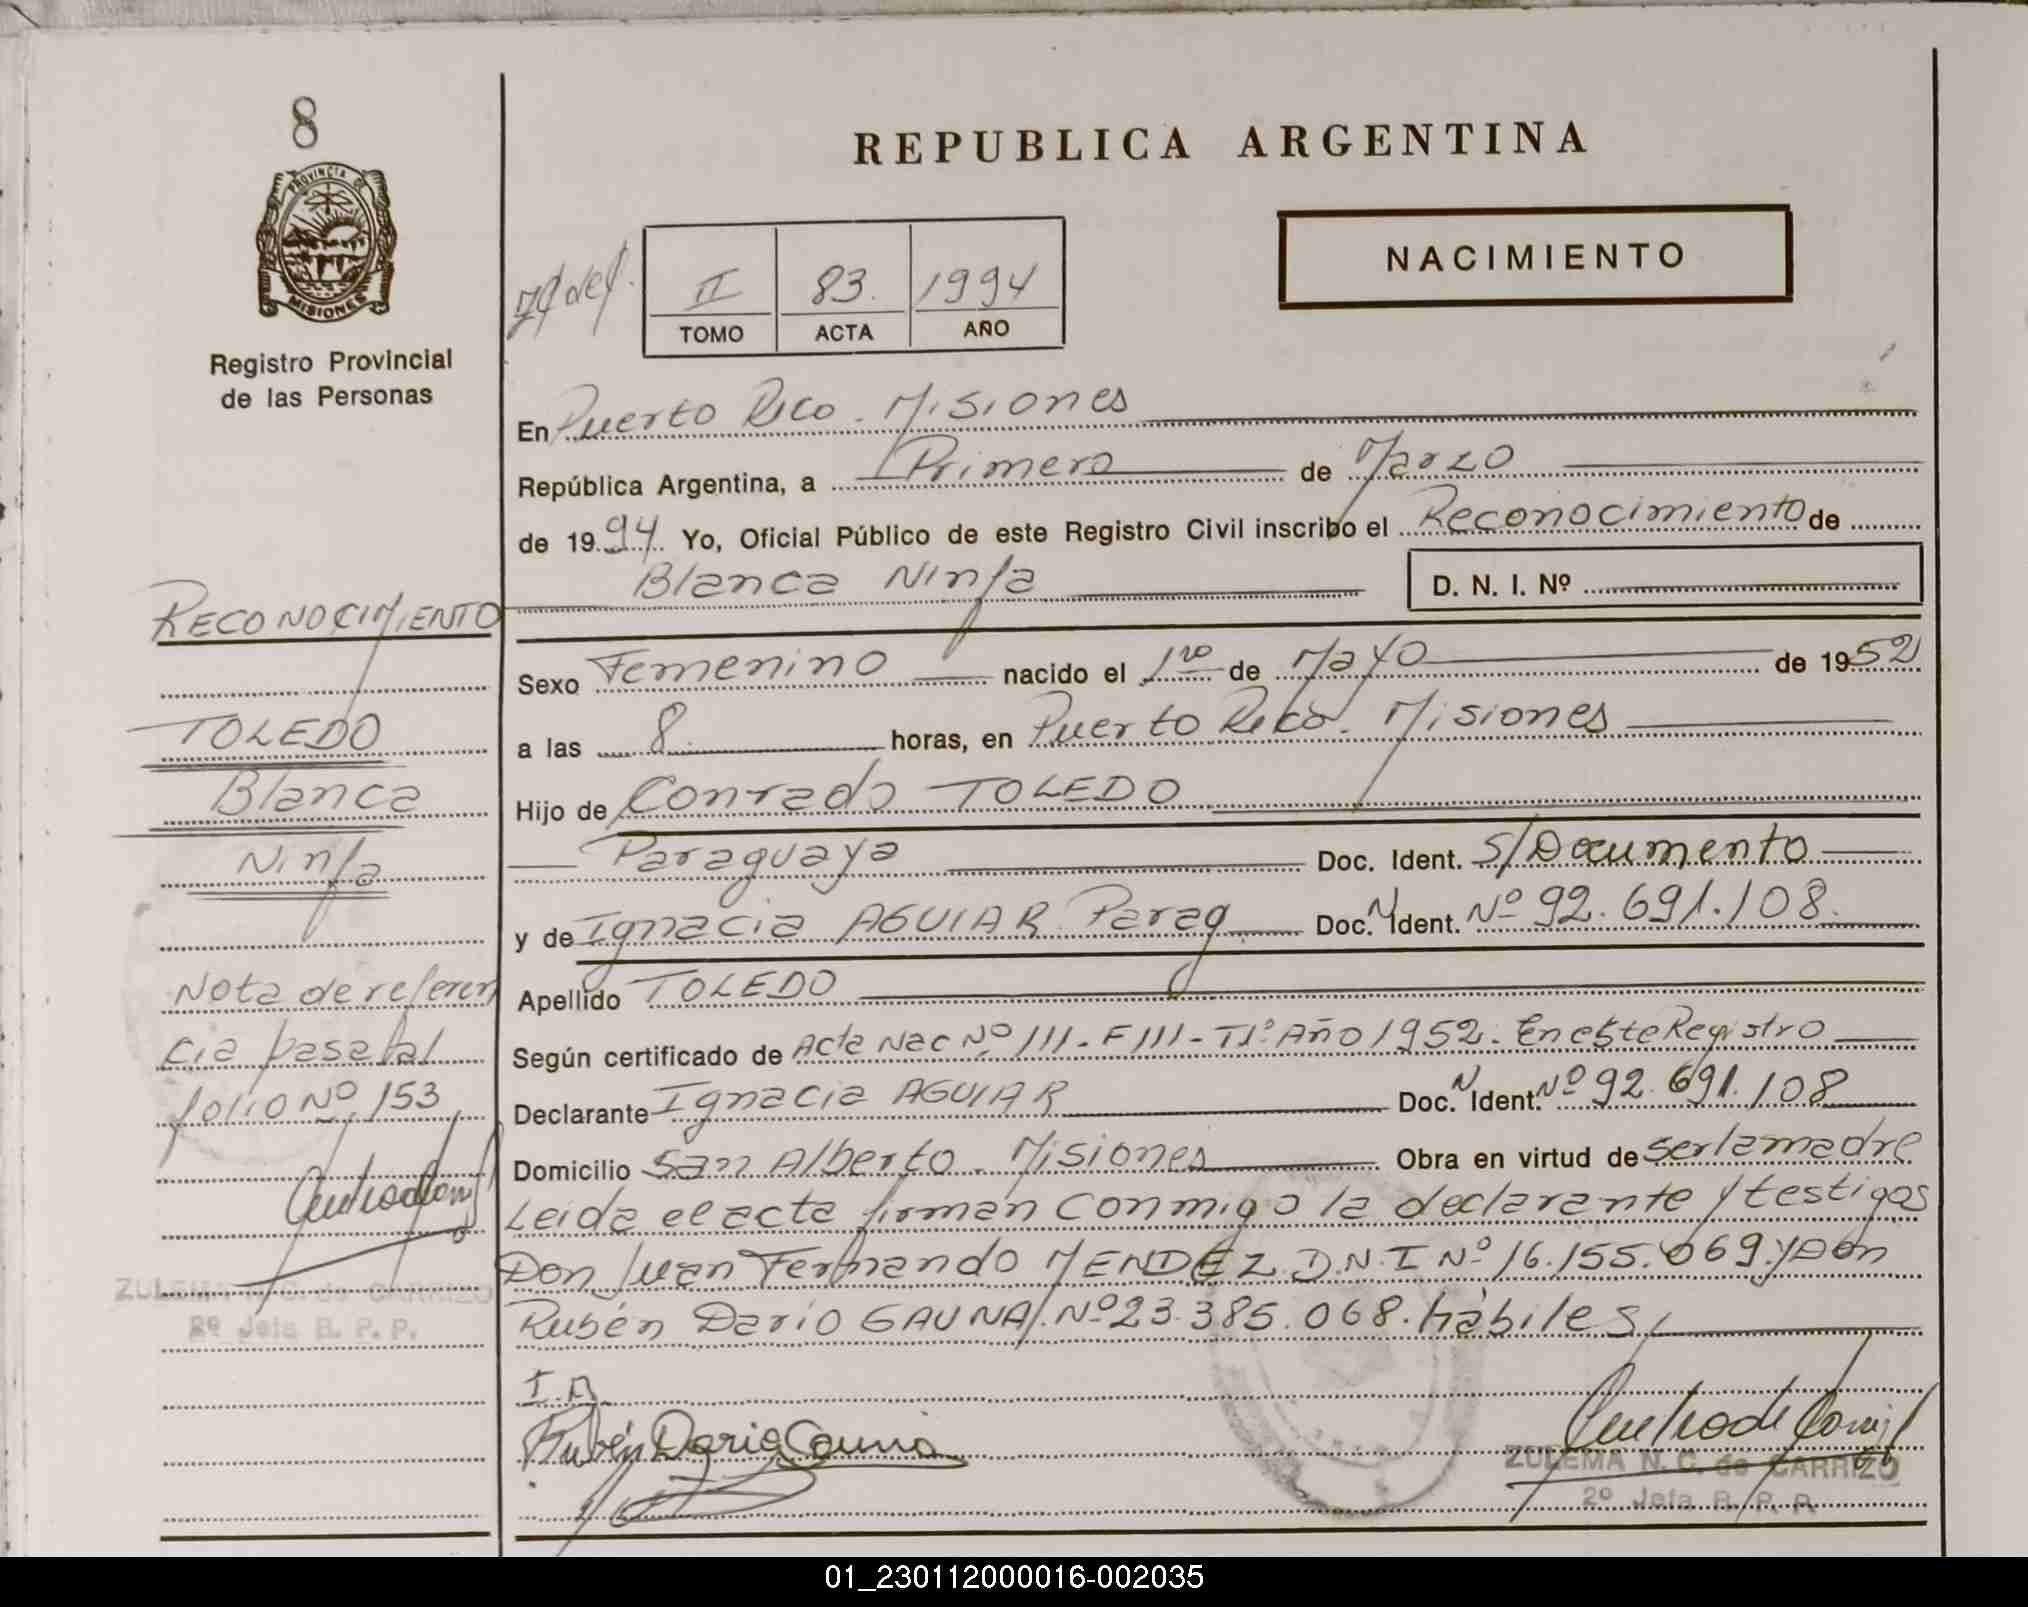 8
PROVINCIA DE
MISIONES
Registro Provincial
de las Personas
REPUBLICA ARGENTINA
NACIMIENTO
II 83. 1994
TOMO ACTA AÑO
En Puerto Rico. Misiones
República Argentina, a Primero de Marzo
de 1994 Yo, Oficial Público de este Registro Civil inscribo el Reconocimiento de
Blanca Ninfa D. N. I. Nº
Sexo Femenino nacido el 1ro de Mayo de 1952
a las 8 horas, en Puerto Rico. Misiones
Hijo de Conrado TOLEDO
Paraguaya Doc. Ident. S/Documento
y de Ignacia AGUIAR Parag Doc. N Ident. Nº 92.691.108.
Apellido TOLEDO
Según certificado de Acta Nac Nº 111-F111-T1º Año 1952. En este Registro
Declarante Ignacia AGUIAR Doc. N Ident. Nº 92.691.108
Domicilio San Alberto. Misiones Obra en virtud de ser la madre
Leida el acta firman conmigo la declarante y testigos
Don Juan Fernando MENDEZ D.N.I Nº 16.155.069 y Don
Rubén Darío GAUNA. Nº 23.385.068. hábiles
I.A.
Rubén Dario Gauna
ZULEMA N. C. de CARRIZO
2º Jefa R. P. P.
RECONOCIMIENTO
TOLEDO
Blanca
Ninfa
Nota de referen
cia pasa al
folio Nº 153
ZULEMA N. C. de CARRIZO
2º Jefa R. P. P.
01_230112000016-002035